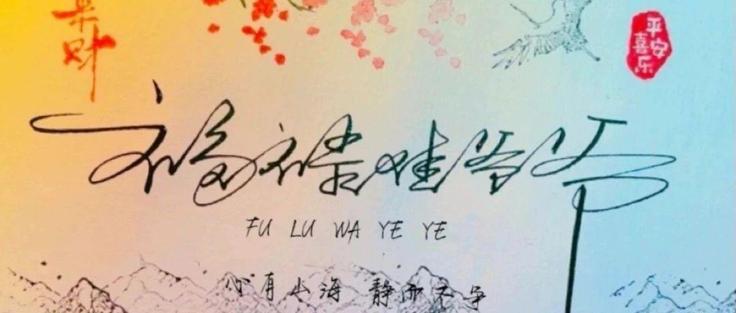 来财
平安
喜乐
福禄娃爷爷
FU LU WA YE YE
心有山海 静而不争